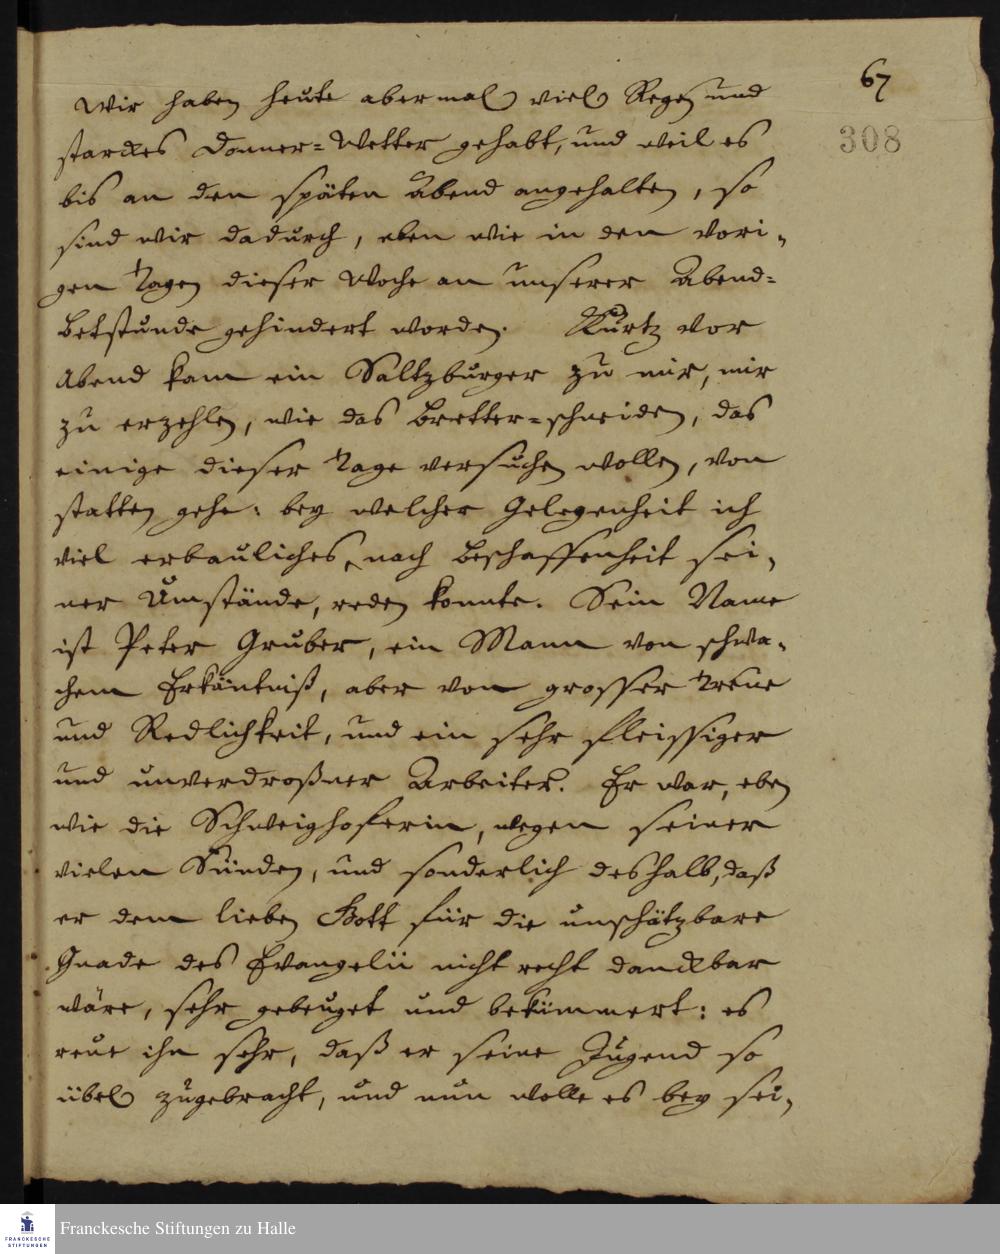 67
308
Wir haben heute abermal viel Regen und
starckes Donner=Wetter gehabt, und weil es
bis an den späten Abend angehalten, so
sind wir dadurch, eben wie in den vori-
gen Tagen dieser Woche an unserer Abend=
Betstunde gehindert worden. Kurtz vor
Abend kam ein Saltzburger zu mir, mir
zu erzehlen, wie das Bretter=schneiden, das
einige dieser Tage versuchen wollen, von
statten gehe: bey welcher Gelegenheit ich
viel erbauliches, nach Beschaffenheit sei-
ner Umstände, reden konnte. Sein Name
ist Peter Gruber, ein Mann von schwa-
chem Erkäntniß, aber von grosser Treue
und Redlichkeit, und ein sehr fleissiger
und unverdroßner Arbeiter. Er war, eben
wie die Schweighoferin, wegen seiner
vielen Sünden, und sonderlich deshalb, daß
er dem lieben Gott für die unschätzbare
Gnade des Evangelii nicht recht danckbar
wäre, sehr gebeuget und bekümmert: es
reue ihn sehr, daß er seine Jugend so
übel zugebracht, und nun wolle es bey sei-
Franckesche Stiftungen zu Halle
FRANCKESCHE
STIFTUNGEN